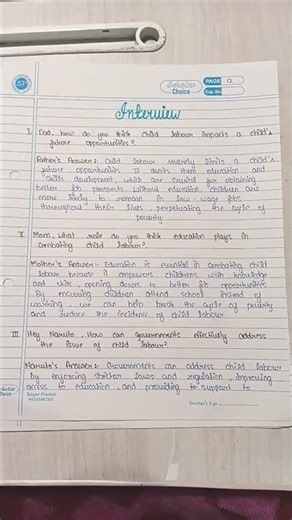 SP
Scholar
Choice
PAGE 12
Exp. No.
Interview
I. Dad, how do you think child labour impacts a child's
future opportunities?
Father's Answer: Child labour severely limits a child's
future opportunities. It denies them education and
skills development, which are crucial for obtaining
better job prospects. Without education children are
more likely to remain in low wage jobs
throughout their lives, perpetuating the cycle of
poverty
II. Mom, what role do you think education plays in
combating child labour?
Mother's Answer: Education is essential in combating child
labour because it empowers childrens with knowledge
and skills, opening doors to better job opportunities
By ensuring children attend school instead of
working, we can help break the cycle of poverty
and reduce the incidence of child labour
III Hey Naruto, How can governments effectively address
the issue of child labour?
Naruto's Answer: Governments can address child labour
by enforcing stricter laws and regulation, improving
access to education, and providing to support to
Teacher's Sign